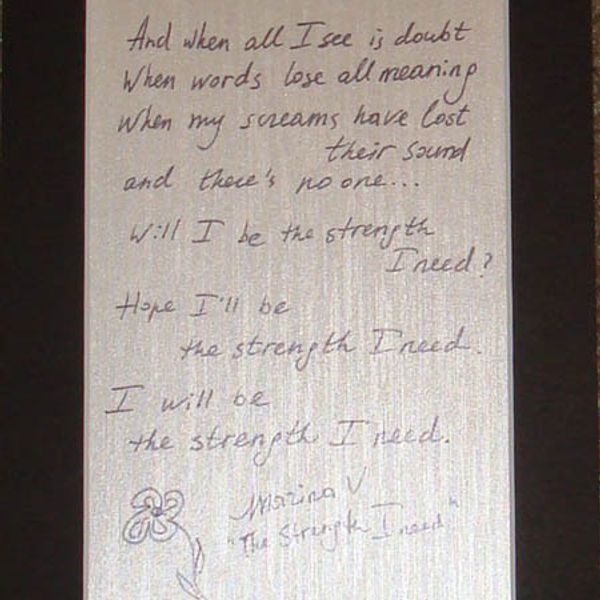 And when all I see is doubt
When words lose all meaning
When my screams have lost
their sound
and there's no one...
Will I be the strength
I need?
Hope I'll be
the strength I need.
I will be
the strength I need.
Marina V
"The Strength I need"